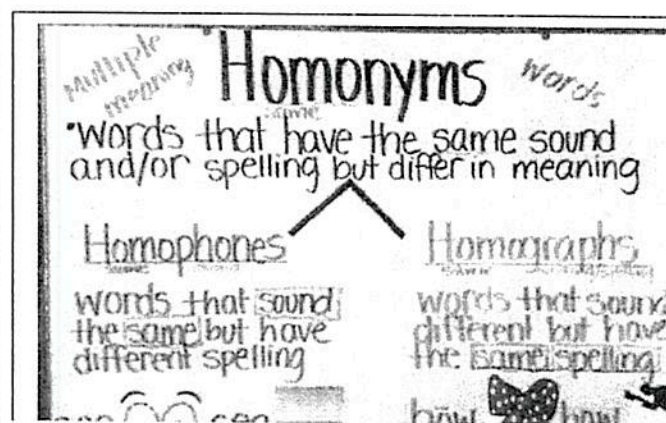 Multiple
meaning
Homonyms
words
same
•words that have the same sound
and/or spelling but differ in meaning
Homophones
same
words that sound
the same but have
different spelling
see sea
Homographs
same
words that sound
different but have
the same spelling
bōw bow